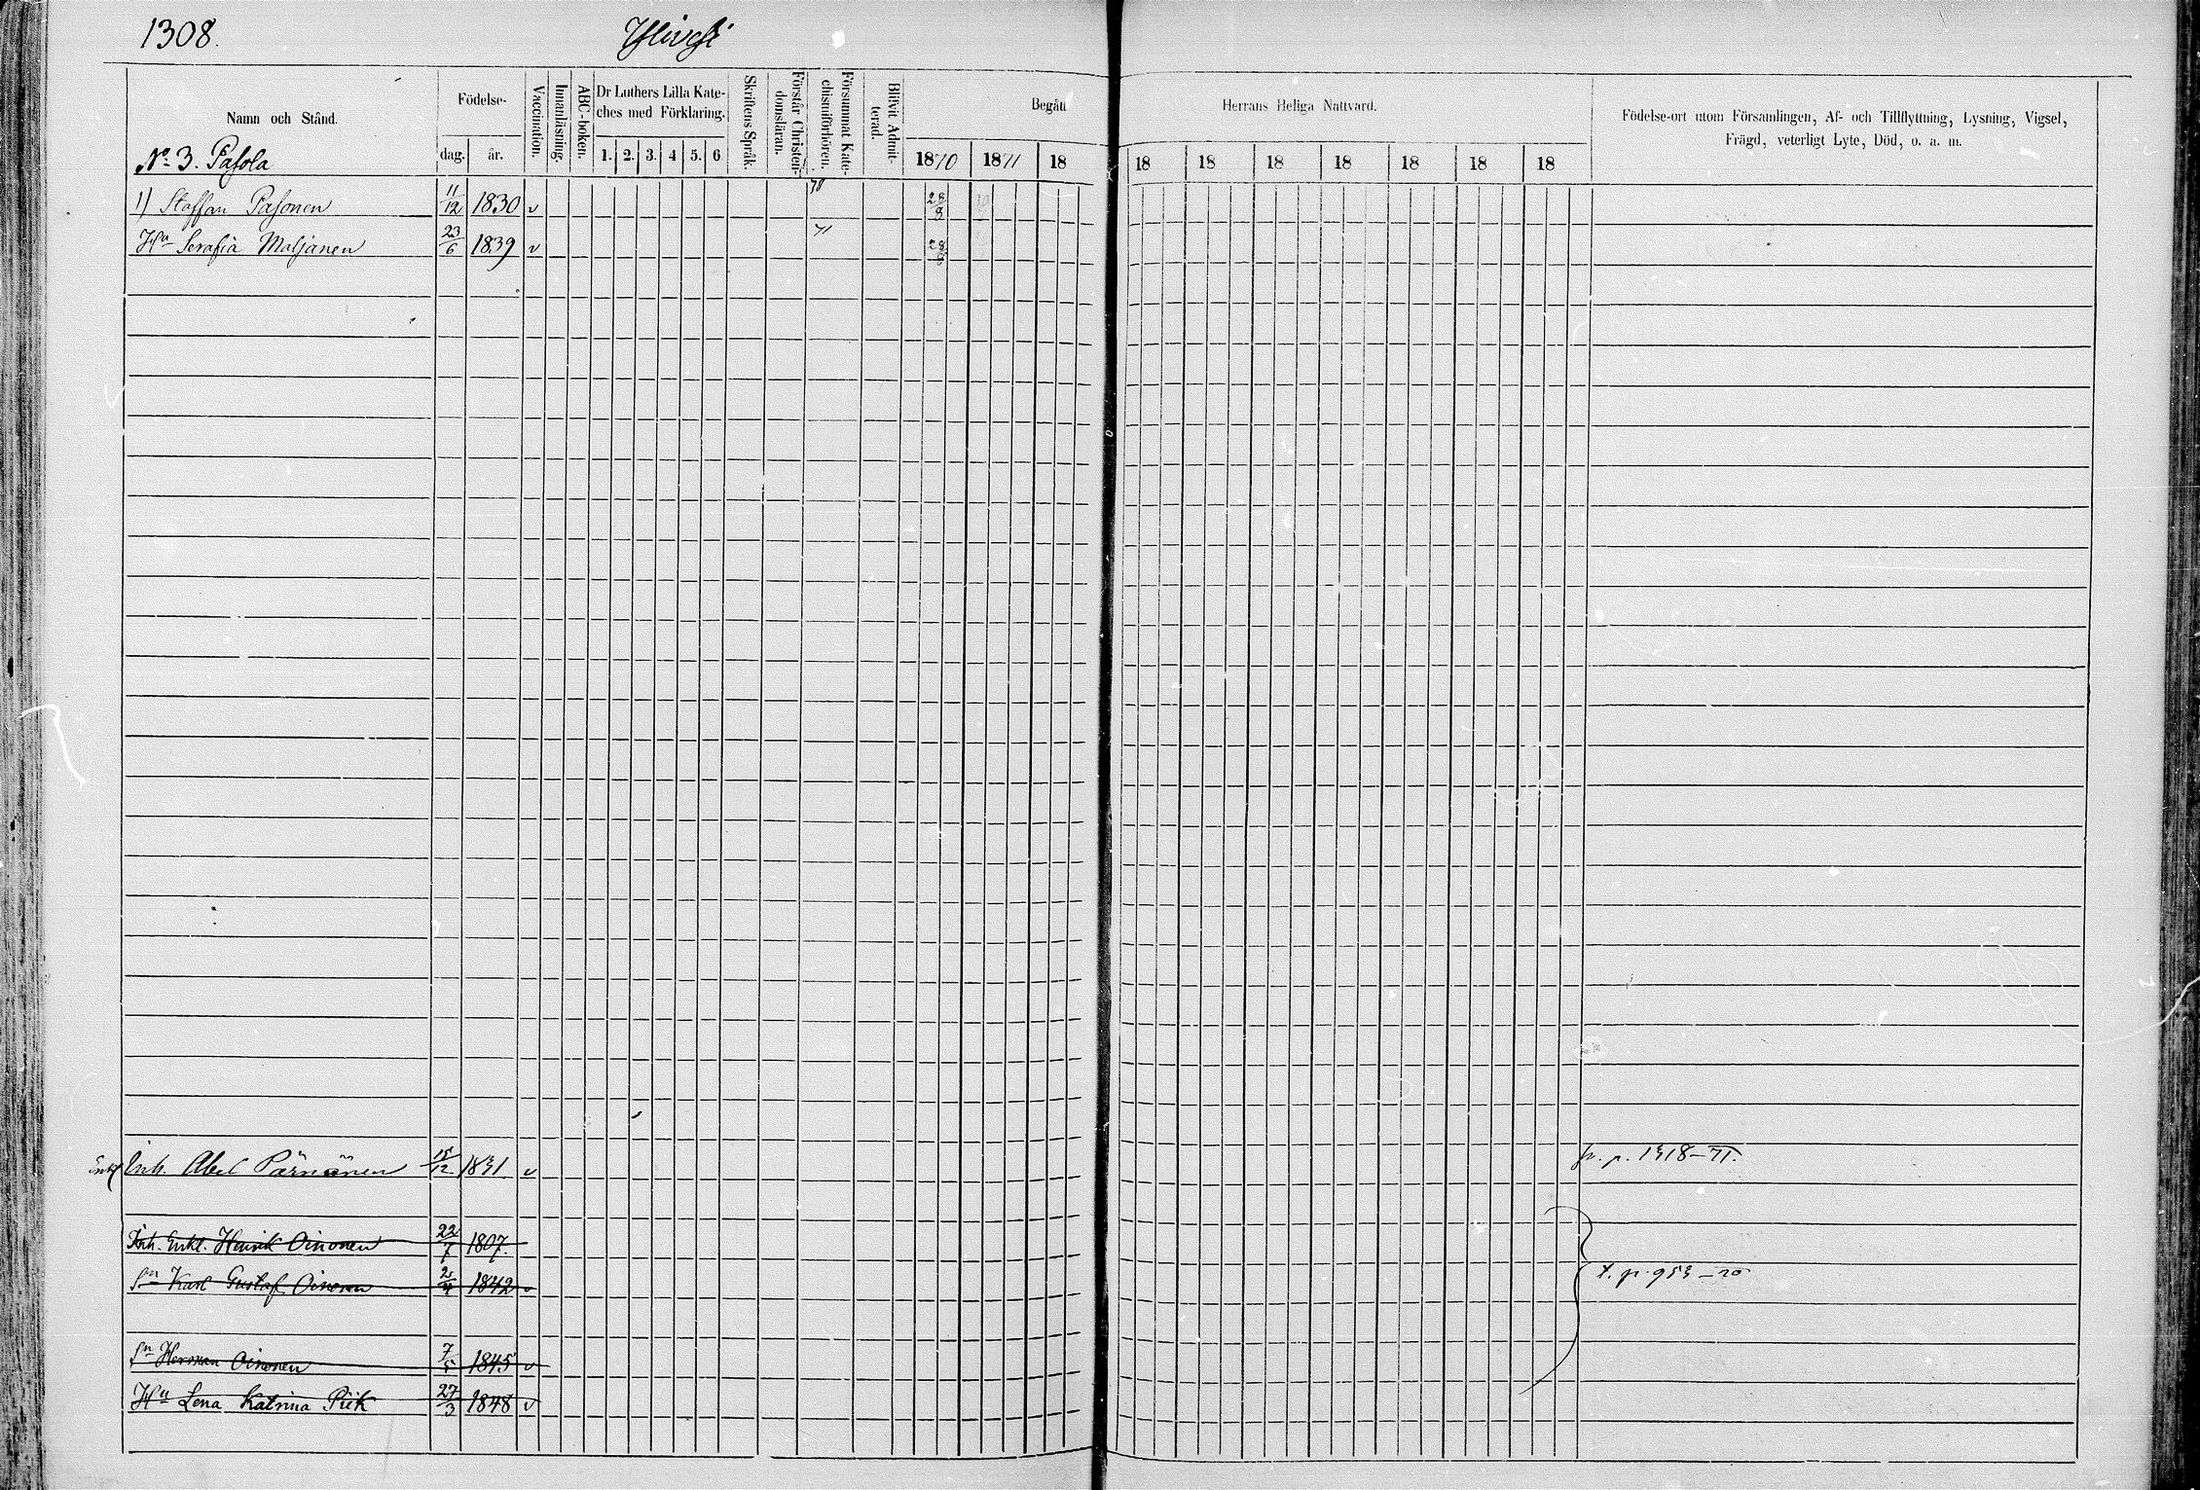 1308.
Ylivesi
Namn och Stånd.
Födelse-
dag.
år.
Vaccination.
Innanläsning.
ABC-boken.
Dr Luthers Lilla Kate-
ches med Förklaring.
1. 2. 3. 4 5. 6
Skriftens Språk.
Förstår Christen-
domsläran.
Försummat Kate-
chismiförhören.
Blifvit Admit-
terad.
Begått
1870 1871 18
Herrans Heliga Nattvard.
18 18 18 18 18 18 18
Födelse-ort utom Församlingen, Af- och Tillflyttning, Lysning, Vigsel,
Frägd, veterligt Lyte, Död, o. a. m.
No 3. Pasola
1) Staffan Pasonen 11/12 1830 v 28/8
Hu Serafia Maljanen 23/6 1839 v 71 28/8
Enkl Inh. Abel Pärnänen 15/12 1831 v fr. p. 1318–71.
Inh. Enkl. Henrik Oinonen 22/7 1807.
Sn Karl Gustaf Oinonen 2/4 1842 v t. p. 953–70
Sn Herman Oinonen 7/5 1845 v
Hu Lena Katrina Piik 27/3 1848 v